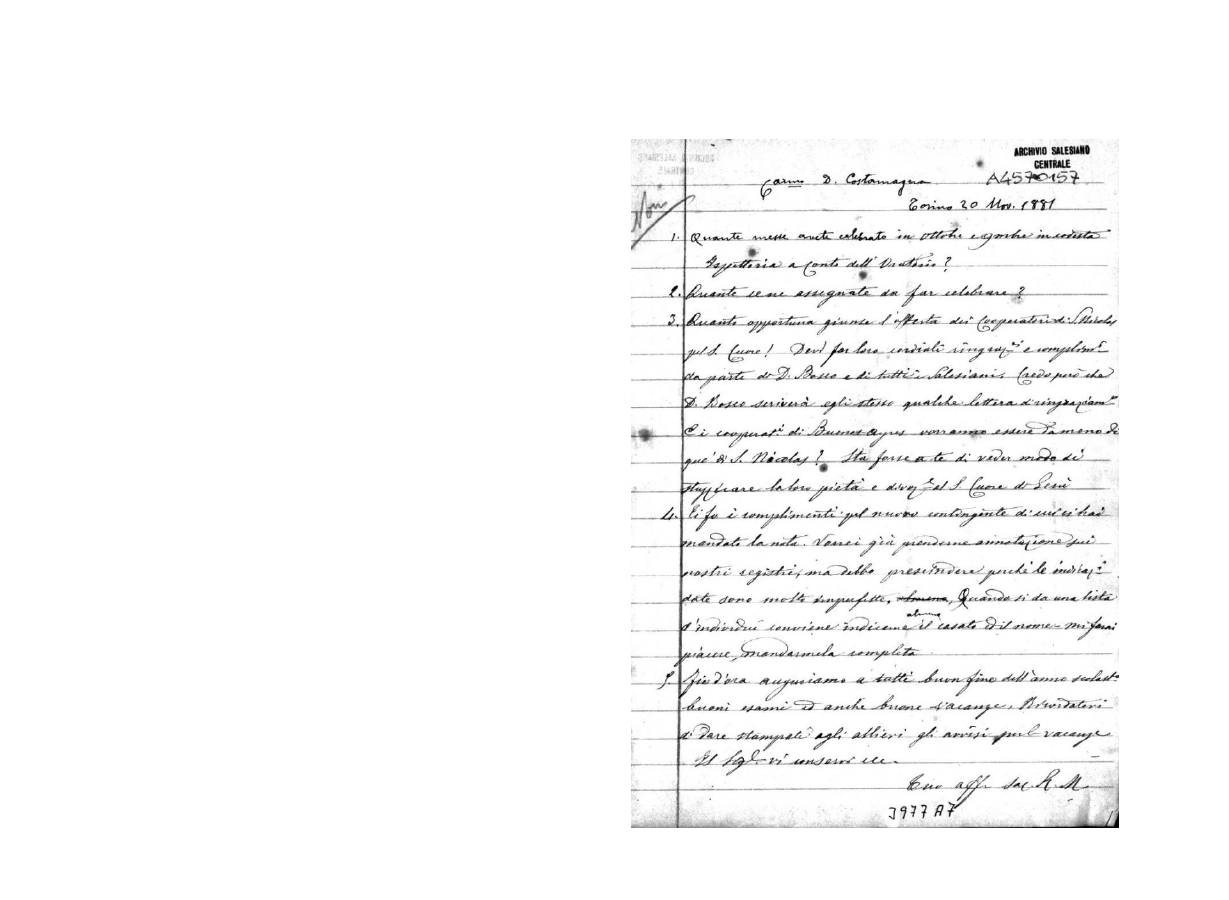 ARCHIVIO SALESIANO
CENTRALE
A4570157
Carmo D. Costamagna
Torino 20 Nov. 1881
1. Quante messe avete celebrato in ottobre e 9mbre in codesta
Ispettoria a conto dell' Oratorio?
2. Quante ce ne assegnate da far celebrare?
3. Quanto opportuna giunse l'offerta dei Cooperatori di S. Nicolas
pel S. Cuore! Devi far loro cordiali ringrazti e complimti
da parte di D. Bosco e di tutti i Salesiani. Credo però che
D. Bosco scriverà egli stesso qualche lettera di ringraziamto
E i cooperati di Buenos Ayres vorranno essere da meno di
que' di S. Nicolas? Sta forse a te di veder modo di
stuzzicare la loro pietà e divoze al S. Cuore di Gesù
4. Ti fo i complimenti pel nuovo contingente di cui ci hai
mandato la nota. Vorrei già prenderne annotazione sui
nostri registri, ma debbo prescindere perchè le indicazi
date sono molto imperfette, almeno, Quando si da una lista
d'individui conviene indicarne almeno il casato ed il nome - mi farai
piacere mandarmela completa
5. Fin d'ora auguriamo a tutti buon fine dell'anno scolasto
buoni esami ed anche buone vacanze. Ricordatevi
di dare stampati agli allievi gli avvisi per le vacanze
Il Sigre vi conservi ecc.
Tuo aff. sac. R. M.
3977 A7